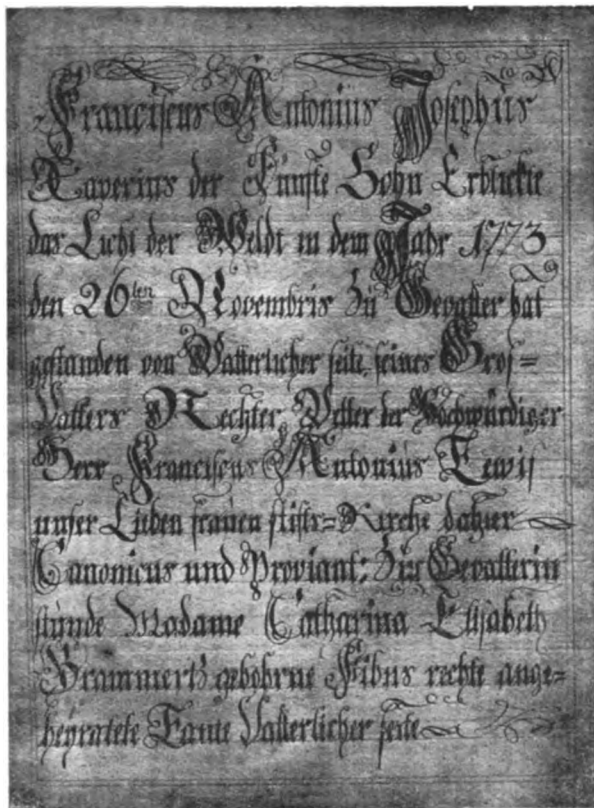 Franciscus Antonius Josephus
Xaverius der Fünfte Sohn Erblickte
das Licht der Weldt in dem Jahr 1773
den 26ten Novembris Zu Gevatter hat
gestanden von Vatterlicher seite, seines Gros=
Vatters Rechter Vetter der Hochwürdiger
Herr Franciscus Antonius Tewis
unser Lieben frauen stifts=Kirche dahier
Canonicus und Proviant; Zur Gevatterin
stunde Madame Catharina Elisabeth
Brammertz gebohrne Fibus rechte ange=
heyratete Tante Vatterlicher seite